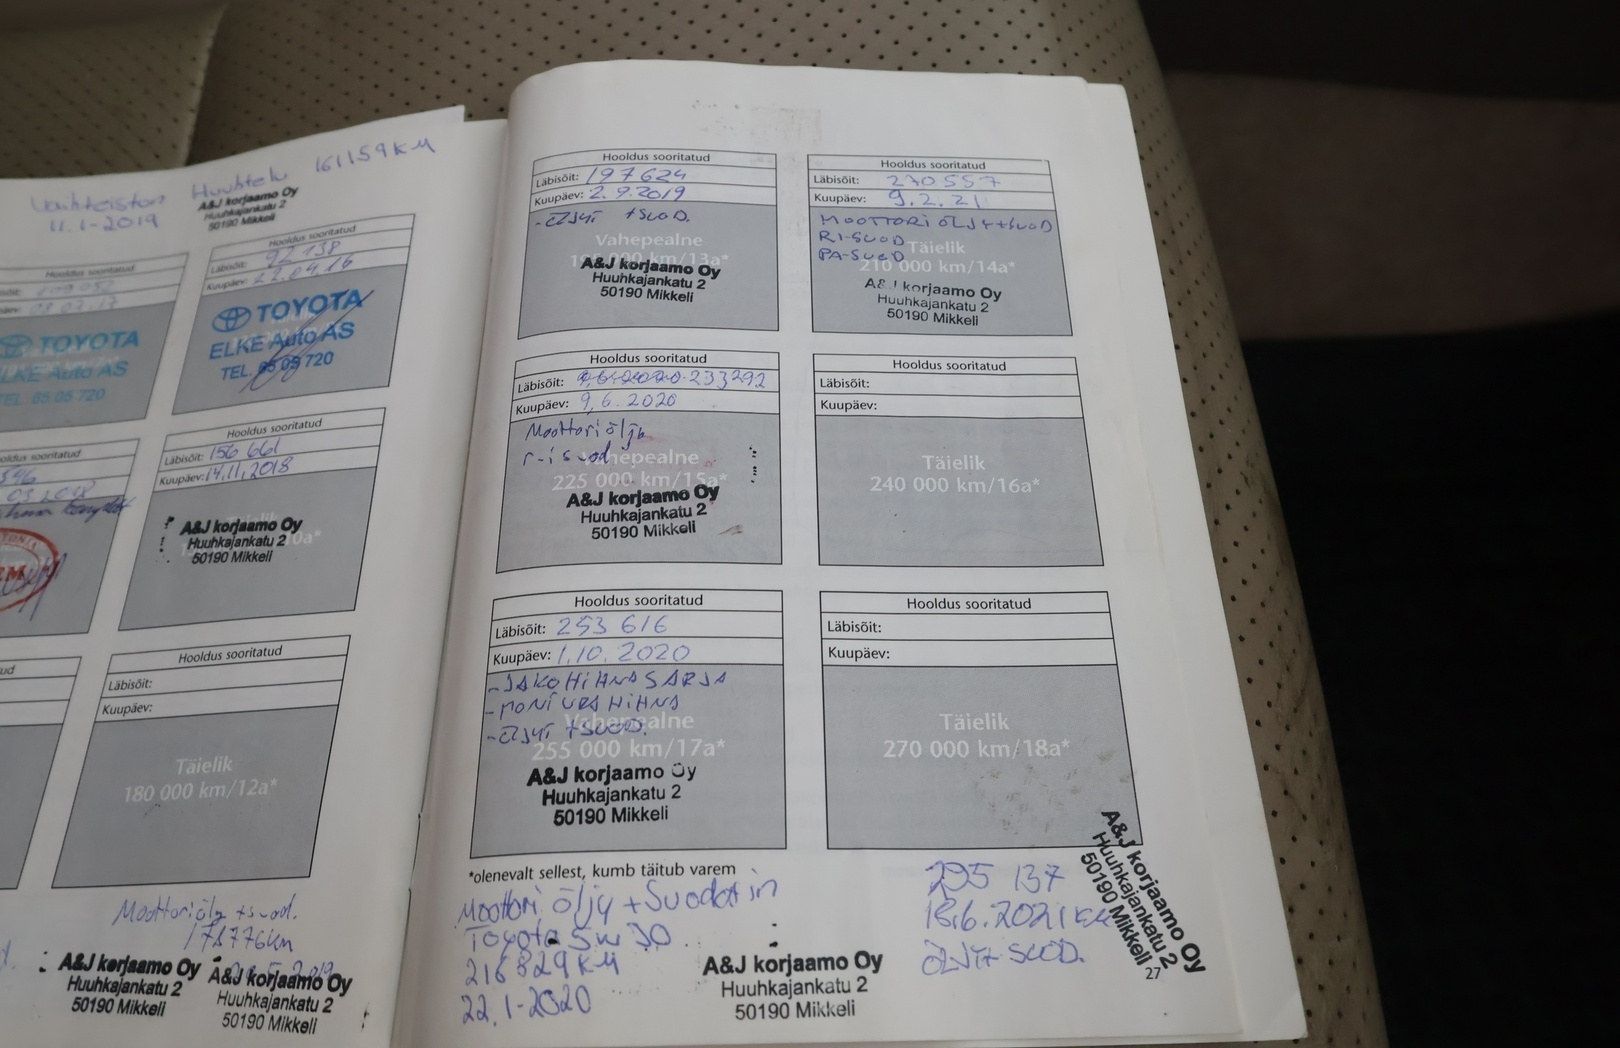 Vaihteiston Huuhtelu 161159 KM
11.1-2019
A&J korjaamo Oy
Huuhkajankatu 2
50190 Mikkeli
Hooldus sooritatud
TOYOTA
ELKE Auto AS
TEL. 65 05 720
Hooldus sooritatud
Läbisõit: 92 138
Kuupäev: 22.04.16
TOYOTA
ELKE Auto AS
TEL. 65 05 720
Hooldus sooritatud
Läbisõit: 156 661
Kuupäev: 14.11.2018
A&J korjaamo Oy
Huuhkajankatu 2
50190 Mikkeli
Hooldus sooritatud
Läbisõit:
Kuupäev:
Täielik
180 000 km/12a*
Moottoriöljy +suod.
178776km
A&J korjaamo Oy
Huuhkajankatu 2
50190 Mikkeli
A&J korjaamo Oy
Huuhkajankatu 2
50190 Mikkeli
Hooldus sooritatud
Läbisõit: 197624
Kuupäev: 2.9.2019
-ÖLJYT +SUOD.
Vahepealne
A&J korjaamo Oy
Huuhkajankatu 2
50190 Mikkeli
Hooldus sooritatud
Läbisõit: 270557
Kuupäev: 9.2.21
MOOTTORIÖLJY+SUOD
RI-SUOD
PA-SUOD
Täielik
210 000 km/14a*
A&J korjaamo Oy
Huuhkajankatu 2
50190 Mikkeli
Hooldus sooritatud
Läbisõit: 9.6.2020 233292
Kuupäev: 9.6.2020
Moottoriöljy
r-i suod
Vahepealne
225 000 km/15a*
A&J korjaamo Oy
Huuhkajankatu 2
50190 Mikkeli
Hooldus sooritatud
Läbisõit:
Kuupäev:
Täielik
240 000 km/16a*
Hooldus sooritatud
Läbisõit: 253 616
Kuupäev: 1.10.2020
-JAKOHIHNASARJA
-MONIURAHIHNA
-ÖLJYT +SUOD.
Vahepealne
255 000 km/17a*
A&J korjaamo Oy
Huuhkajankatu 2
50190 Mikkeli
Hooldus sooritatud
Läbisõit:
Kuupäev:
Täielik
270 000 km/18a*
*olenevalt sellest, kumb täitub varem
Moottori öljy +Suodatin
Toyota 5w30
216829KM
22.1-2020
A&J korjaamo Oy
Huuhkajankatu 2
50190 Mikkeli
295 137
18.6.2021 KM
ÖLJYT SUOD.
A&J korjaamo Oy
Huuhkajankatu 2
50190 Mikkeli
27